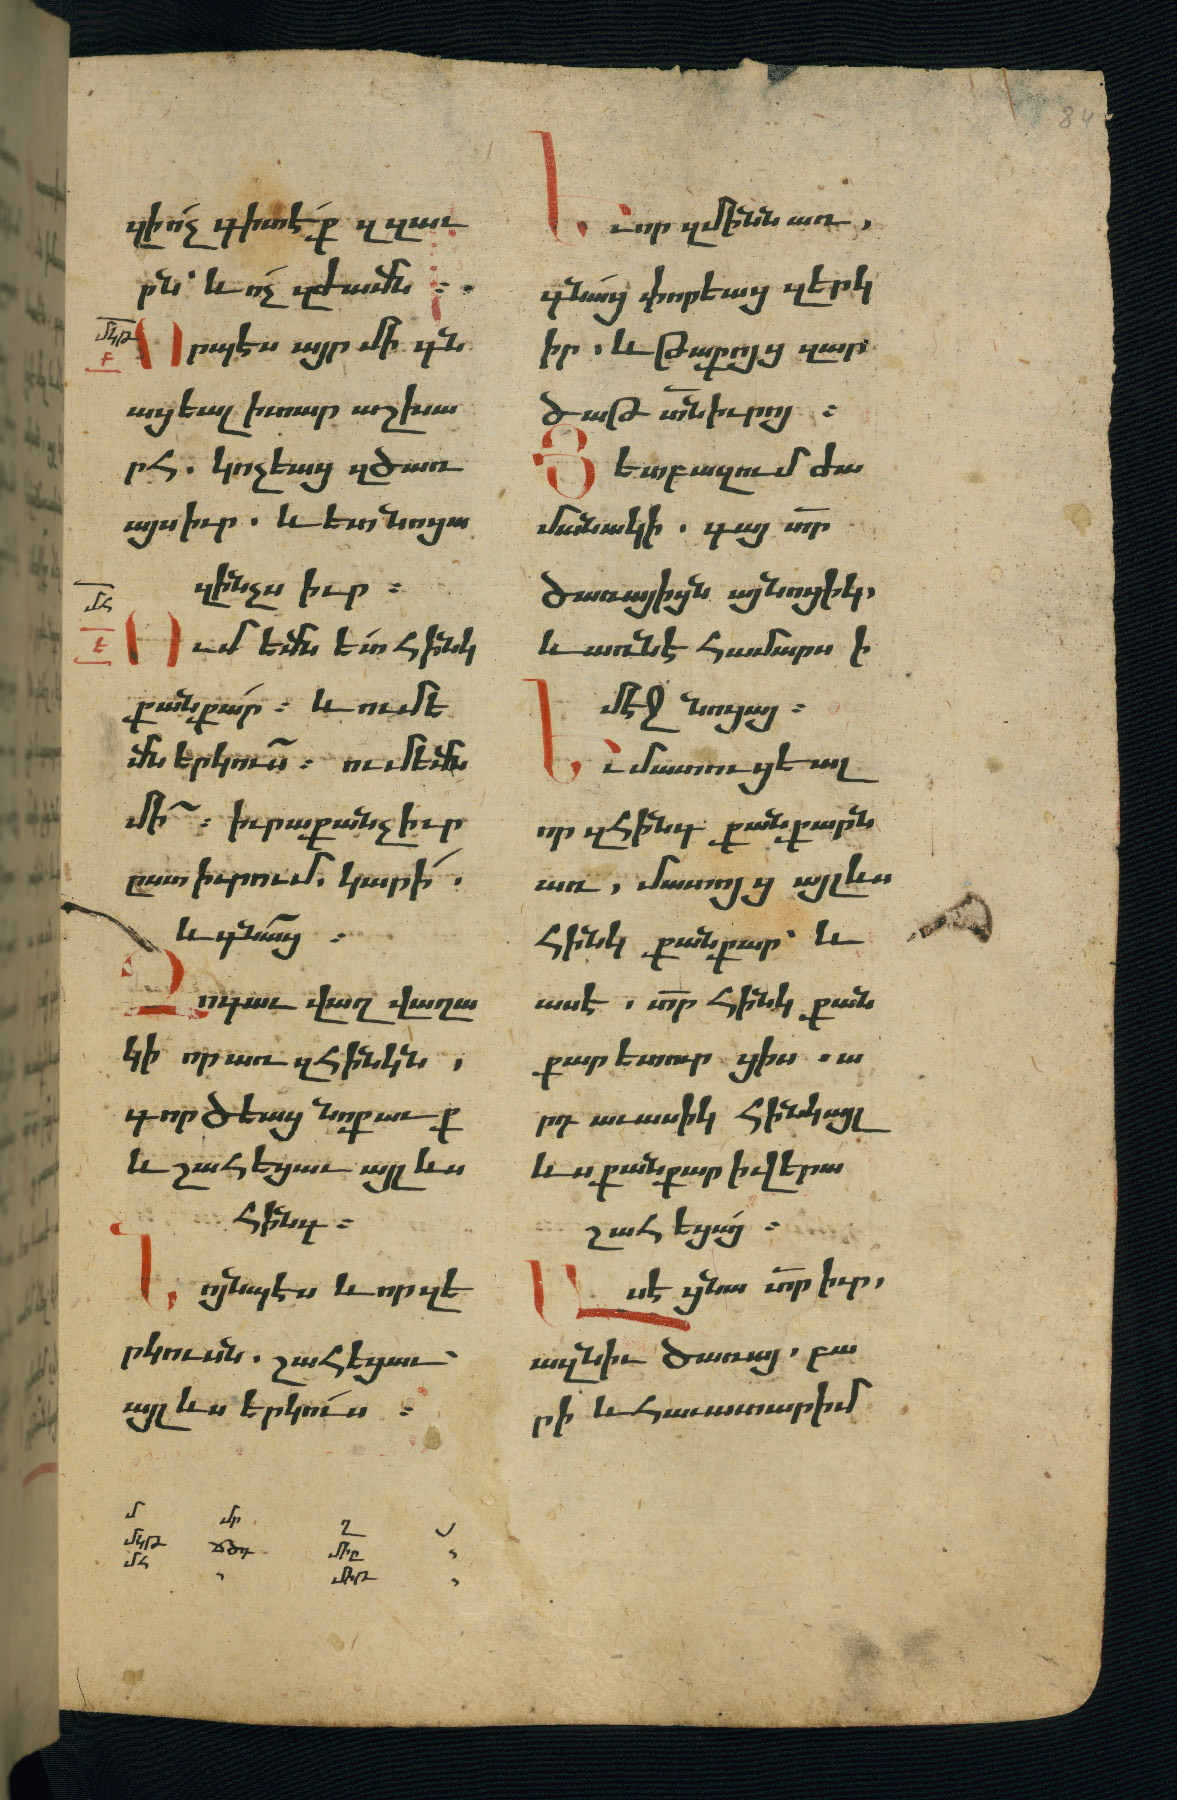 զի ո՛չ գիտէ՛ք զզաւ
րն՝ և ո՛չ զժամն ։
Որպէս այր մի գն
ացեալ իտար աշխա
րհ . կոչեաց զծառ
այս իւր . և ետ նոցա
զինչս իւր ։
Ում եմն ետ հինկ
քանքար ։ և ումե
մն երկուս ։ ումեմն
մի ։ իւրաքանչիւր
ըստ իւրում կարի .
և գնաց ։
Չոգաւ վաղ վաղա
կի որ առ զհինկն ,
գործեաց նոքաւք
և շահեցաւ այլ ևս
հինգ ։
Նոյնպէս և որ զե
րկուսն . շահեցաւ
այլ ևս երկուս ։
Եւ որ զմինն առ ,
գնաց փորեաց զերկ
իր . և թաքոյց զար
ծաթ տն իւրոյ ։
Յետ բազում ժա
մանակի . գայ տր
ծառայիցն այնոցիկ,
և առնէ համարս ի
մէջ նոցայ ։
Եւ մատուցեալ
որ զհինգ քանքարն
առ , մատոյց այլ ևս
հինկ քանքար՝ և
ասէ . տր հինկ քան
քար ետուր ցիս . ա
րդ աւասիկ հինկ այլ
և ս քանքար ի վերա
շահեցայ ։
Ասէ ցնա տր իւր,
ազնիւ ծառայ , բա
րի և հաւատարիմ
մկթ
բ
մհ
ե
84
մ մր ղ
մկթ ճծդ միը
մհ միթ